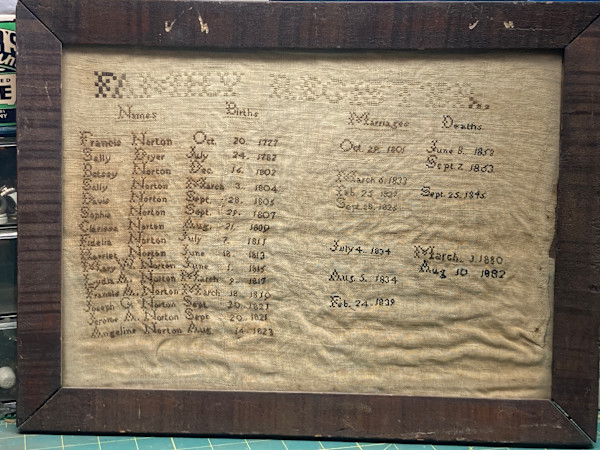 FAMILY
Names Births Marriages Deaths
Francis Norton Oct. 20. 1777 Oct. 29. 1801 June 8. 1852
Sally Dyer July 24. 1782 Sept. 7. 1863
Betsey Norton Dec. 16. 1802 March 6. 1833
Sally Norton March 3. 1804 Feb. 25. Sept. 25. 1845
Davis Norton Sept. 28. 1805 Sept. 28.
Sophia Norton Sept. 29. 1807
Clarissa Norton Aug. 21. 1809
Fidelia Norton July 7. 1811 July 4. 1834 March. 1880
Harriet Norton June 18. 1813 Aug 10 1882
Mary Norton June 1. 1815 Aug. 5. 1834
Lydia A. Norton March 9. 1817
Francis A. Norton March 18. Feb. 24. 1839
Joseph Norton Sept 20. 1821
Jerome A. Norton Sept 20. 1821
Angeline Norton Aug 14. 1823